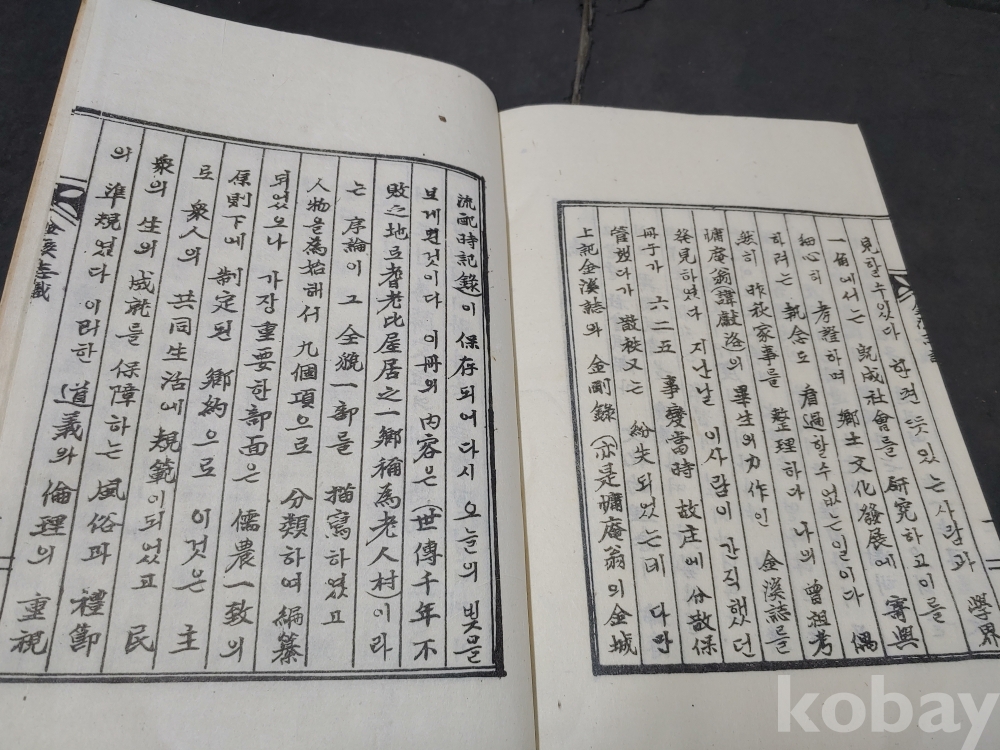 見할수있다 하련뜻있는사람과 學界
一角에서는 旣成社會를 硏究하고이를
細心히 考證하며 鄕土文化發展에 寄與
하려는 執念도 看過할수없는일이다 偶
然히 昨秋家事를 整理하다 나의曾祖考
庵翁(諱獻洛의 畢生의力作인 金溪誌를
發見하였다 지난날 이사람이 간직했던
冊子가 六二五 事變當時 故庄에 分散保
管했다가 散秩又는 紛失되었는데 다만
上記金溪誌와 金剛錄(亦是 庵翁의 金城
流配時記錄)이 保存되어 다시 오늘의 빛을
보게된것이다 이冊의 內容은(世傳千年不
敗之地로耆老比屋居之一鄕稱為老人村)이라
는 序論이 그 全貌一部를 描寫하였고
人物을為始해서 九個項으로 分類하여 編纂
되었으나 가장重要한部面은 儒農一致의
原則下에 制定된 鄕約으로 이것은 主
로 衆人의 共同生活에 規範이되었고 民
衆의 生의 成就를 保障하는 風俗과 禮節
의 準規였다 이러한 道義와倫理의 重視
kobay